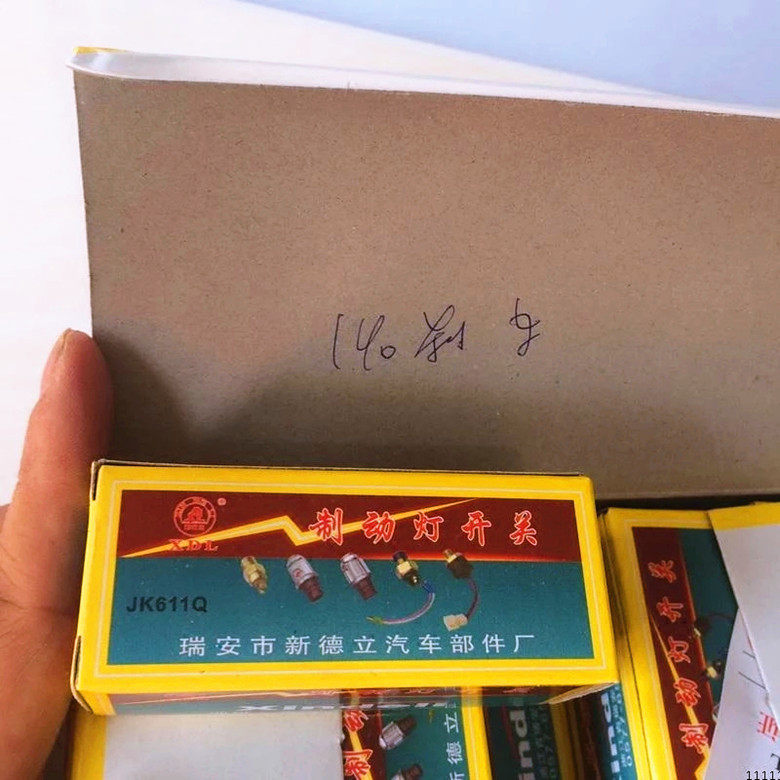 140刹车
XDL
®
制动灯开关
JK611Q
瑞安市新德立汽车部件厂
制动
新德立
制动灯开关
1111